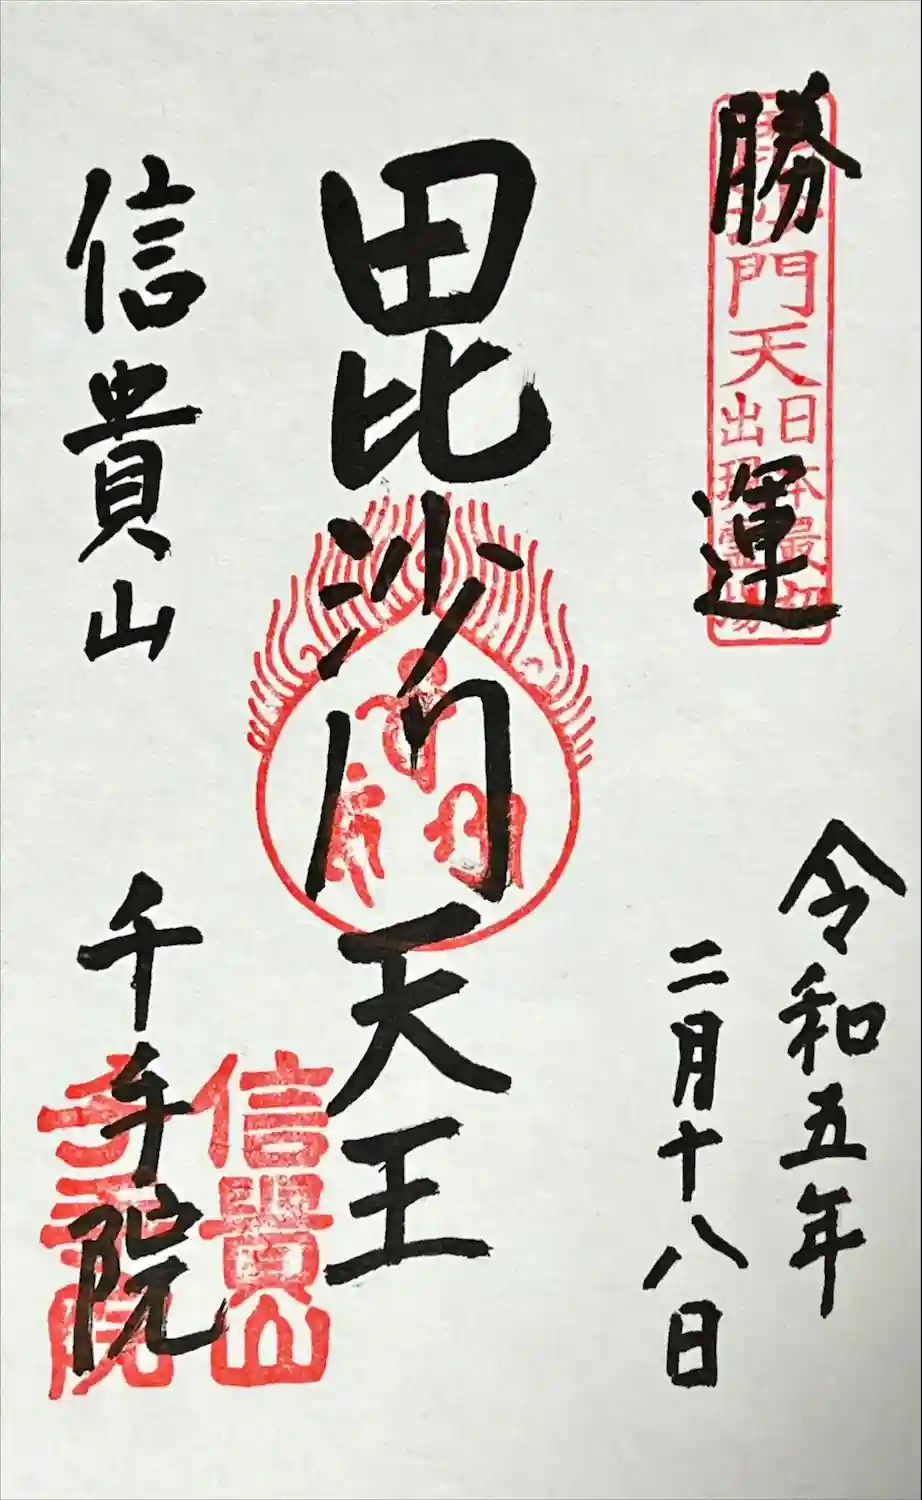 勝運
毘沙門天
日本最初
出現霊場
令和五年
二月十八日
毘沙門天王
信貴山
千手院
信貴山
千手院